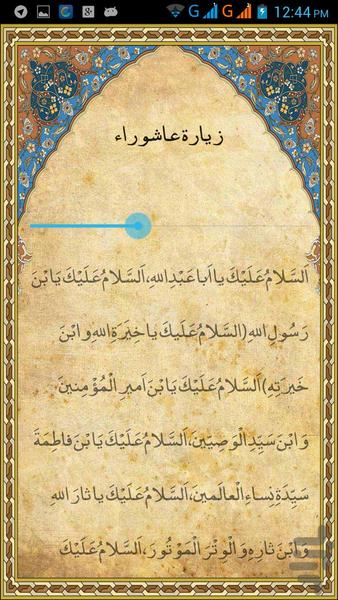 12:44 PM
زيارة عاشوراء
اَلسَّلامُ عَلَيْكَ يا اَبا عَبْدِاللهِ، اَلسَّلامُ عَلَيْكَ يَا بْنَ
رَسُولِ اللهِ (السَّلامُ عَلَيكَ يا خِيَرَةِ اللهِ و ابْنَ
خَيرَتِهِ) اَلسَّلامُ عَلَيْكَ يَا بْنَ اَميرِ الْمُؤْمِنينَ
وَ ابْنَ سَيِّدِ الْوَصِيّينَ، اَلسَّلامُ عَلَيْكَ يَا بْنَ فاطِمَةَ
سَيِّدَةِ نِساءِ الْعالَمينَ، اَلسَّلامُ عَلَيْكَ يا ثارَ اللهِ
وَ ابْنَ ثارِهِ وَ الْوِتْرَ الْمَوْتُورَ، اَلسَّلامُ عَلَيْكَ